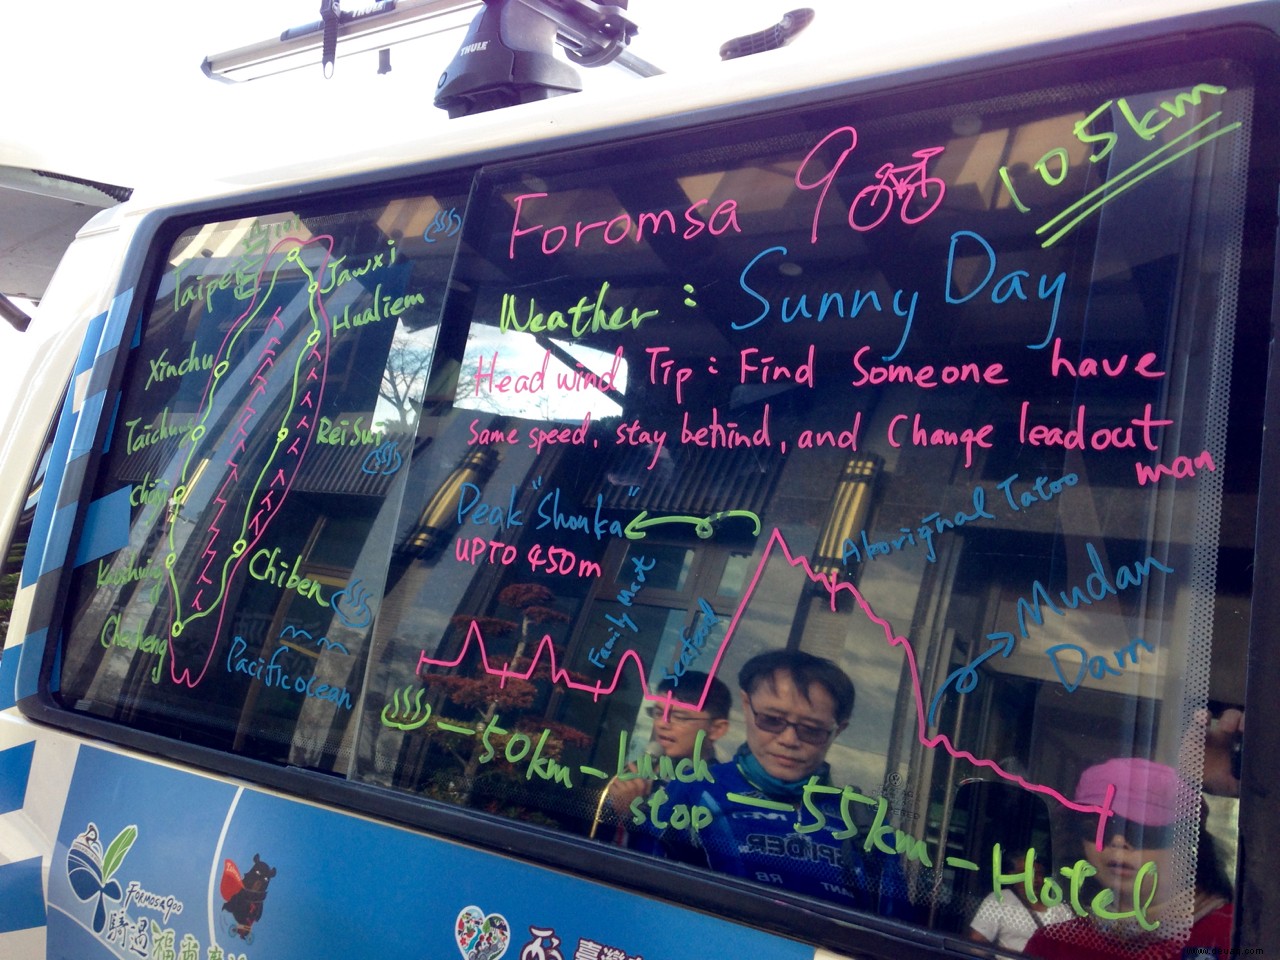 THULE
THULE
Foromsa 9
105km
Weather : Sunny Day
Head wind Tip : Find Someone have
same speed, stay behind, and Change leadout
man
Peak "Shouka"
UP TO 450m
Aborignal Tatoo
Mudan
Dam
Family Mart
Seafood
50km - Lunch
stop - 55km - Hotel
101
Taipei
Jawxi
Hualiem
Xinchu
Taichung
ReiSui
Chiayi
Kaoshiung
Chiben
Checheng
Pacific ocean
FORMOSA900
騎過福爾摩沙